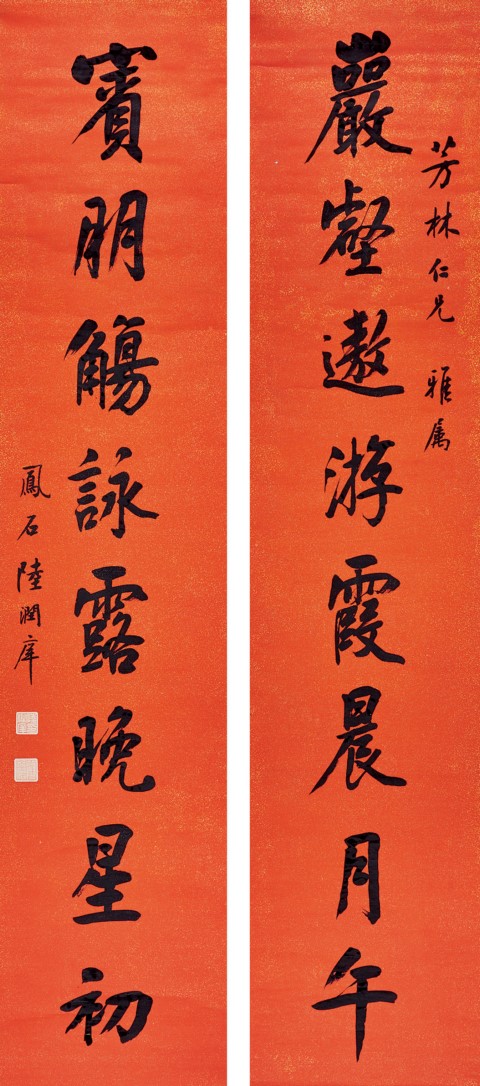 芳林仁兄 雅属
巖壑遨游霞晨月午
賓朋觴詠露晚星初
鳳石陸潤庠